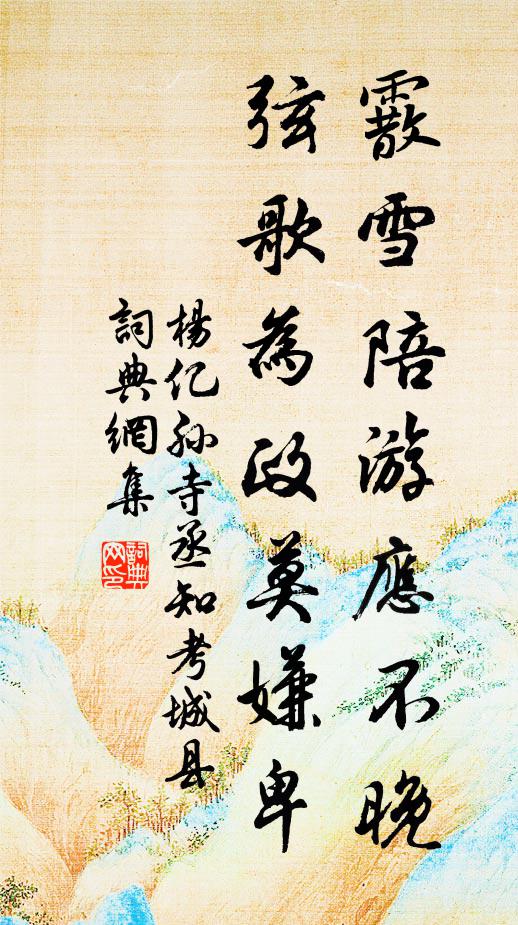 霰雪陪游應不晚
弦歌為政莫嫌卑
楊亿孙寺丞知考城县
詞典網集
詞典网印